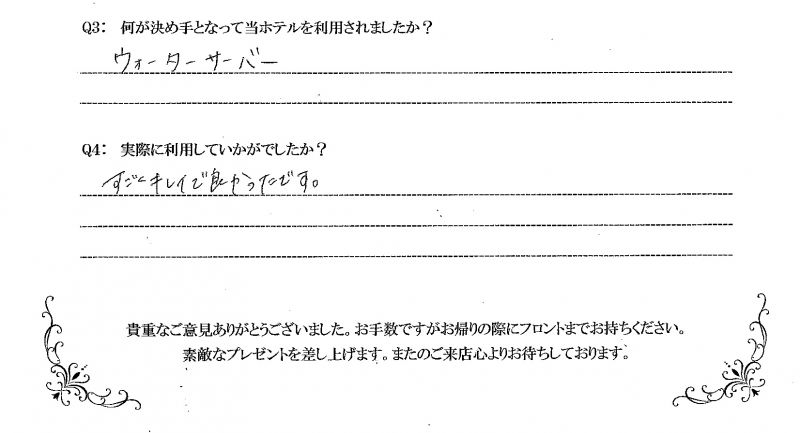 Q3: 何が決め手となって当ホテルを利用されましたか？
ウォーターサーバー
Q4: 実際に利用していかがでしたか？
すごくキレイで良かったです。
貴重なご意見ありがとうございました。お手数ですがお帰りの際にフロントまでお持ちください。
素敵なプレゼントを差し上げます。またのご来店心よりお待ちしております。